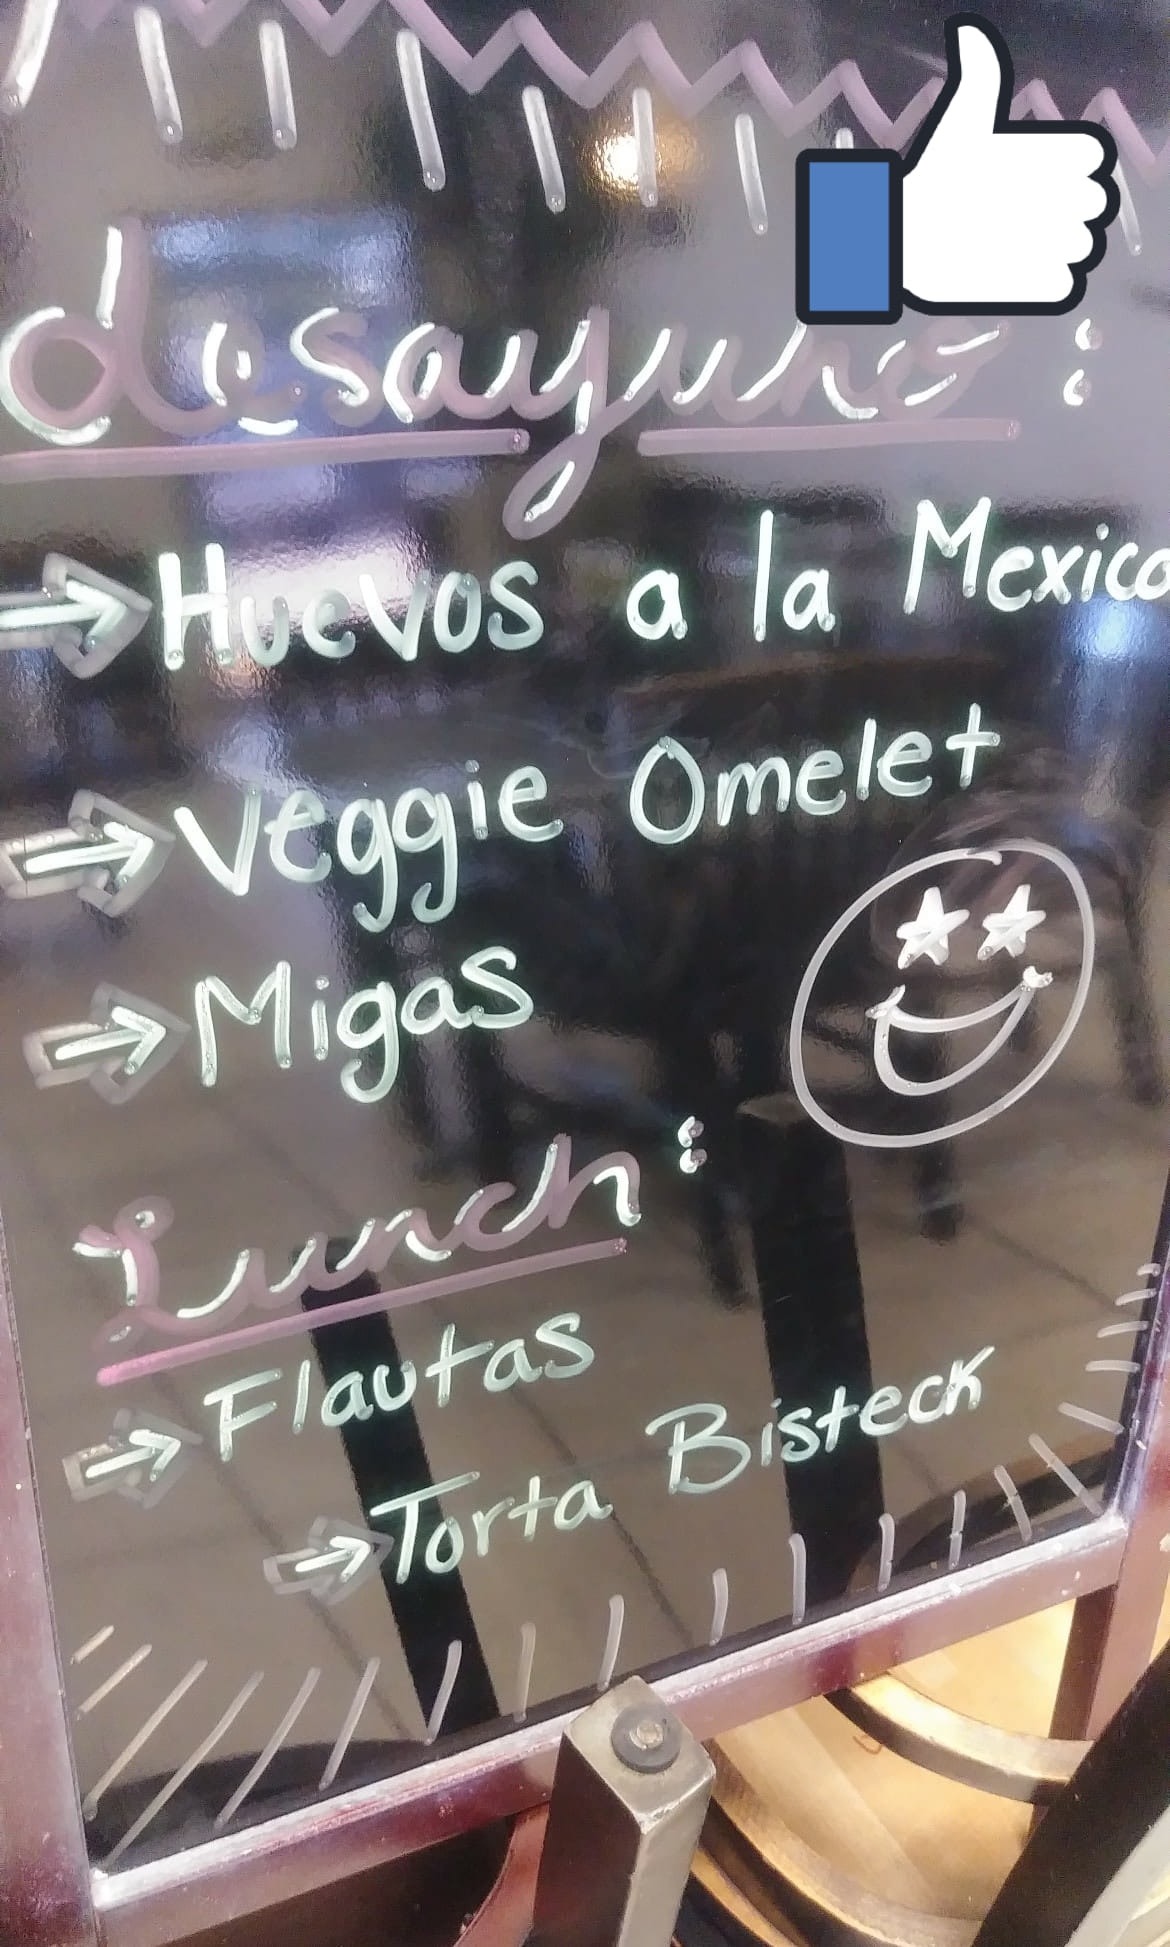 desayuno:
→ Huevos a la Mexico
→ Veggie Omelet
→ Migas
Lunch:
→ Flautas
→ Torta Bisteck